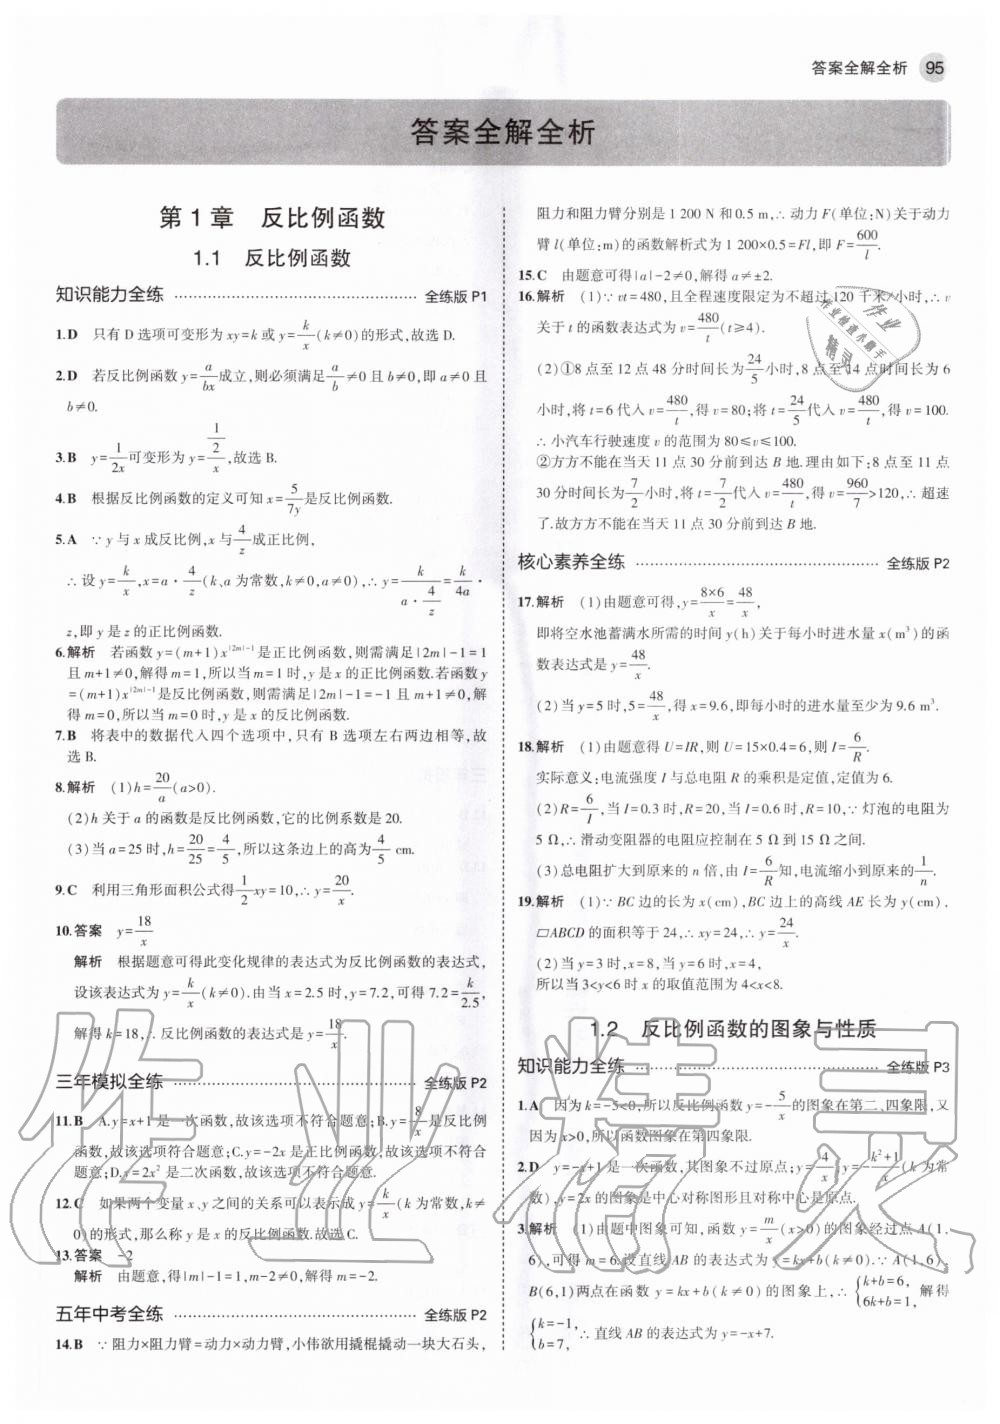 答案全解全析 95
答案全解全析
第1章 反比例函数
1.1 反比例函数
知识能力全练 …… 全练版P1
1.D 只有D选项可变形为xy=k或y=k/x(k≠0)的形式,故选D.
2.D 若反比例函数y=a/bx成立,则必须满足a/b≠0且b≠0,即a≠0且
b≠0.
3.B y=1/2x可变形为y=(1/2)/x,故选B.
4.B 根据反比例函数的定义可知x=5/7y是反比例函数.
5.A ∵y与x成反比例,x与4/z成正比例,
∴设y=k/x,x=a·4/z(k、a为常数,k≠0,a≠0),∴y=k/(a·4/z)=k/4a·
z,即y是z的正比例函数.
6.解析 若函数y=(m+1)x^|2m|-1是正比例函数,则需满足|2m|-1=1
且m+1≠0,解得m=1,所以当m=1时,y是x的正比例函数.若函数y
=(m+1)x^|2m|-1是反比例函数,则需满足|2m|-1=-1且m+1≠0,解
得m=0,所以当m=0时,y是x的反比例函数.
7.B 将表中的数据代入四个选项中,只有B选项左右两边相等,故
选B.
8.解析 (1)h=20/a(a>0).
(2)h关于a的函数是反比例函数,它的比例系数是20.
(3)当a=25时,h=20/25=4/5,所以这条边上的高为4/5 cm.
9.C 利用三角形面积公式得1/2xy=10,∴y=20/x.
10.答案 y=18/x
解析 根据题意可得此变化规律的表达式为反比例函数的表达式,
设该表达式为y=k/x(k≠0).由当x=2.5时,y=7.2,可得7.2=k/2.5,
解得k=18,∴反比例函数的表达式是y=18/x.
三年模拟全练 …… 全练版P2
11.B A.y=x+1是一次函数,故该选项不符合题意;B.y=8/x是反比例
函数,故该选项符合题意;C.y=-2x是正比例函数,故该选项不符合
题意;D.y=2x²是二次函数,故该选项不符合题意.
12.C 如果两个变量x、y之间的关系可以表示成y=k/x(k为常数,k≠
0)的形式,那么称y是x的反比例函数.故选C.
13.答案 -2
解析 由题意,得|m|-1=1,m-2≠0,解得m=-2.
五年中考全练 …… 全练版P2
14.B ∵阻力×阻力臂=动力×动力臂,小伟欲用撬棍撬动一块大石头,
阻力和阻力臂分别是1 200 N和0.5 m,∴动力F(单位:N)关于动力
臂l(单位:m)的函数解析式为1 200×0.5=Fl,即F=600/l.
15.C 由题意可得|a|-2≠0,解得a≠±2.
16.解析 (1)∵vt=480,且全程速度限定为不超过120千米/小时,∴v
关于t的函数表达式为v=480/t(t≥4).
(2)①8点至12点48分时间长为24/5小时,8点至14点时间长为6
小时,将t=6代入v=480/t,得v=80;将t=24/5代入v=480/t,得v=100.
∴小汽车行驶速度v的范围为80≤v≤100.
②方方不能在当天11点30分前到达B地.理由如下:8点至11点
30分时间长为7/2小时,将t=7/2代入v=480/t,得v=960/7>120,∴超速
了.故方方不能在当天11点30分前到达B地.
核心素养全练 …… 全练版P2
17.解析 (1)由题意可得,y=8×6/x=48/x,
即将空水池蓄满水所需的时间y(h)关于每小时进水量x(m³)的函
数表达式是y=48/x.
(2)当y=5时,5=48/x,得x=9.6,即每小时的进水量至少为9.6 m³.
18.解析 (1)由题意得U=IR,则U=15×0.4=6,则I=6/R.
实际意义:电流强度I与总电阻R的乘积是定值,定值为6.
(2)R=6/I,当I=0.3时,R=20,当I=0.6时,R=10,∵灯泡的电阻为
5 Ω,∴滑动变阻器的电阻应控制在5 Ω到15 Ω之间.
(3)总电阻扩大到原来的n倍,由I=6/R知,电流缩小到原来的1/n.
19.解析 (1)∵BC边的长为x(cm),BC边上的高线AE长为y(cm),
▱ABCD的面积等于24,∴xy=24,∴y=24/x.
(2)当y=3时,x=8,当y=6时,x=4,
所以当3<y<6时x的取值范围为4<x<8.
1.2 反比例函数的图象与性质
知识能力全练 …… 全练版P3
1.A 因为k=-5<0,所以反比例函数y=-5/x的图象在第二、四象限,又
因为x>0,所以函数图象在第四象限.
2.D y=-x+1是一次函数,其图象不过原点;y=4/x,y=-(k²+1)/x(k为常
数),y=2x的图象是中心对称图形且对称中心是原点.
3.解析 (1)由题中图象可知,函数y=m/x(x>0)的图象经过点A(1,
6),可得m=6.设直线AB的表达式为y=kx+b(k≠0).∵A(1,6),
B(6,1)两点在函数y=kx+b(k≠0)的图象上,∴{k+b=6, 6k+b=1, 解得
{k=-1, b=7, ∴直线AB的表达式为y=-x+7.
作业
作业检查小助手
精灵
作业精灵